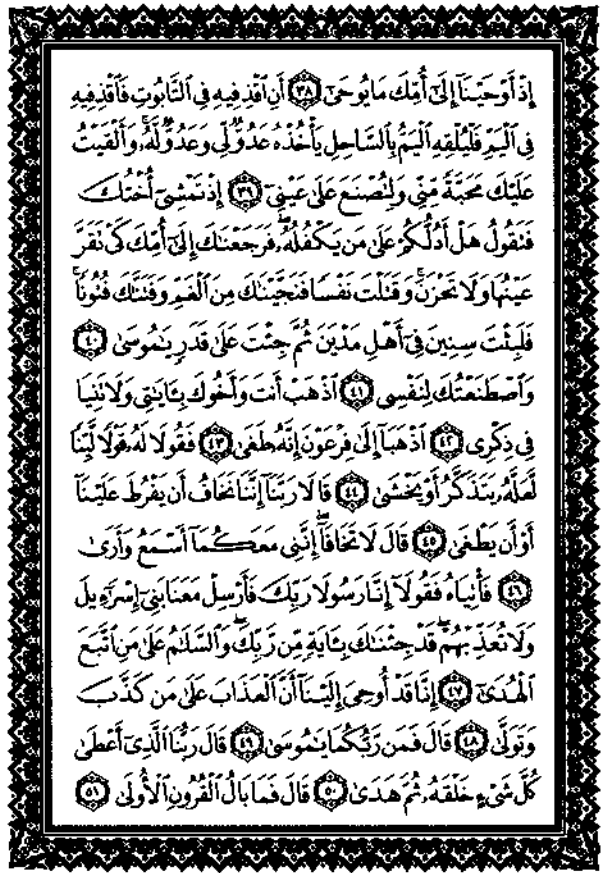 إِذْ أَوْحَيْنَآ إِلَىٰٓ أُمِّكَ مَا يُوحَىٰٓ ﴿٣٨﴾ أَنِ ٱقْذِفِيهِ فِى ٱلتَّابُوتِ فَٱقْذِفِيهِ
فِى ٱلْيَمِّ فَلْيُلْقِهِ ٱلْيَمُّ بِٱلسَّاحِلِ يَأْخُذْهُ عَدُوٌّ لِّى وَعَدُوٌّ لَّهُۥ ۚ وَأَلْقَيْتُ
عَلَيْكَ مَحَبَّةً مِّنِّى وَلِتُصْنَعَ عَلَىٰ عَيْنِىٓ ﴿٣٩﴾ إِذْ تَمْشِىٓ أُخْتُكَ
فَتَقُولُ هَلْ أَدُلُّكُمْ عَلَىٰ مَن يَكْفُلُهُۥ ۖ فَرَجَعْنَـٰكَ إِلَىٰٓ أُمِّكَ كَىْ تَقَرَّ
عَيْنُهَا وَلَا تَحْزَنَ ۚ وَقَتَلْتَ نَفْسًا فَنَجَّيْنَـٰكَ مِنَ ٱلْغَمِّ وَفَتَنَّـٰكَ فُتُونًا ۚ
فَلَبِثْتَ سِنِينَ فِىٓ أَهْلِ مَدْيَنَ ثُمَّ جِئْتَ عَلَىٰ قَدَرٍ يَـٰمُوسَىٰ ﴿٤٠﴾
وَٱصْطَنَعْتُكَ لِنَفْسِى ﴿٤١﴾ ٱذْهَبْ أَنتَ وَأَخُوكَ بِـَٔايَـٰتِى وَلَا تَنِيَا
فِى ذِكْرِى ﴿٤٢﴾ ٱذْهَبَآ إِلَىٰ فِرْعَوْنَ إِنَّهُۥ طَغَىٰ ﴿٤٣﴾ فَقُولَا لَهُۥ قَوْلًا لَّيِّنًا
لَّعَلَّهُۥ يَتَذَكَّرُ أَوْ يَخْشَىٰ ﴿٤٤﴾ قَالَا رَبَّنَآ إِنَّنَا نَخَافُ أَن يَفْرُطَ عَلَيْنَآ
أَوْ أَن يَطْغَىٰ ﴿٤٥﴾ قَالَ لَا تَخَافَآ ۖ إِنَّنِى مَعَكُمَآ أَسْمَعُ وَأَرَىٰ
﴿٤٦﴾ فَأْتِيَاهُ فَقُولَآ إِنَّا رَسُولَا رَبِّكَ فَأَرْسِلْ مَعَنَا بَنِىٓ إِسْرَٰٓءِيلَ
وَلَا تُعَذِّبْهُمْ ۖ قَدْ جِئْنَـٰكَ بِـَٔايَةٍ مِّن رَّبِّكَ ۖ وَٱلسَّلَـٰمُ عَلَىٰ مَنِ ٱتَّبَعَ
ٱلْهُدَىٰٓ ﴿٤٧﴾ إِنَّا قَدْ أُوحِىَ إِلَيْنَآ أَنَّ ٱلْعَذَابَ عَلَىٰ مَن كَذَّبَ
وَتَوَلَّىٰ ﴿٤٨﴾ قَالَ فَمَن رَّبُّكُمَا يَـٰمُوسَىٰ ﴿٤٩﴾ قَالَ رَبُّنَا ٱلَّذِىٓ أَعْطَىٰ
كُلَّ شَىْءٍ خَلْقَهُۥ ثُمَّ هَدَىٰ ﴿٥٠﴾ قَالَ فَمَا بَالُ ٱلْقُرُونِ ٱلْأُولَىٰ ﴿٥١﴾